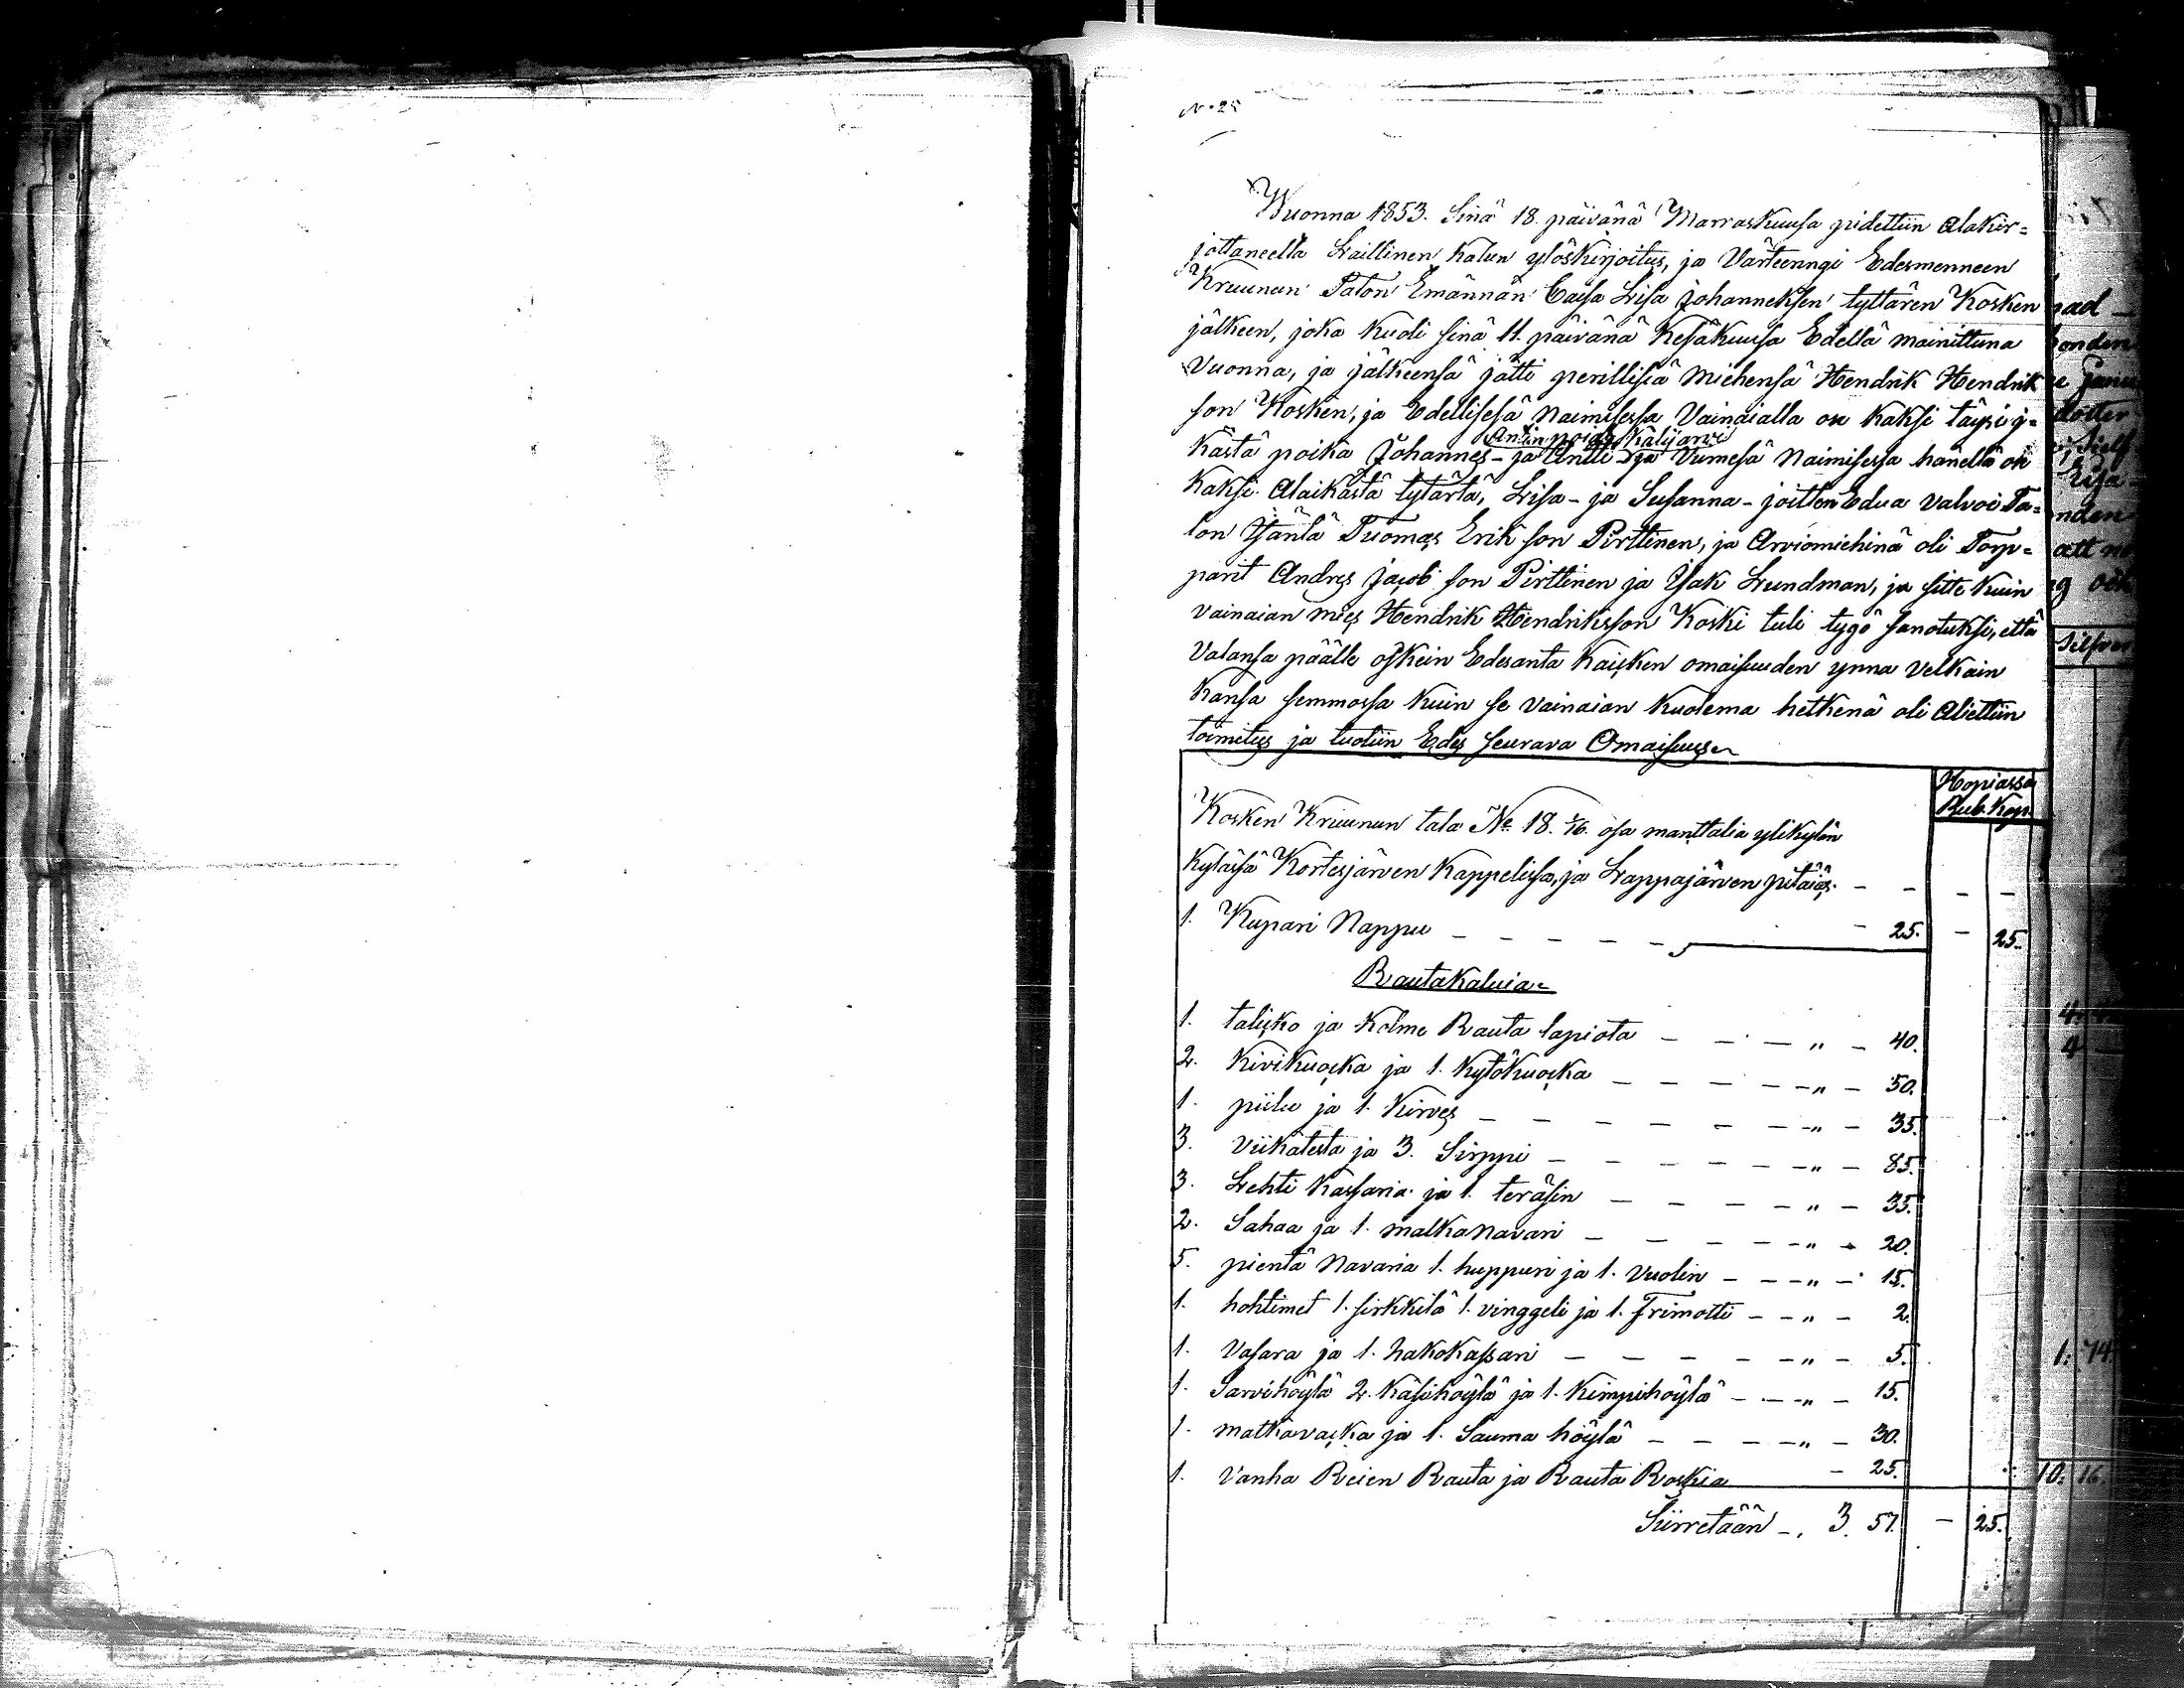 No 25
Wuonna 1853. Sinä 18. päivänä Marraskuusa pidettiin Alakir=
jottaneelta Laillinen Kalun ylöskirjoitus, ja Värteeringi Edesmenneen
Kruunun Talon Emännän Caisa Lisa Johanneksen tyttären Kosken
jälkeen, joka Kuoli sinä 11. päivänä Kesäkuusa Edellä mainittuna
Vuonna, ja jälkeensä jätti perillisiä Miehensä Hendrik Hendrik
son Kosken, ja Edellisesä Naimisessa Vainaialla on Kaksi täysi i=
Antin poias Kälijarvi
kästä poika Johannes - ja Antti - ja Viimesä Naimisessa hänellä on
Kaksi Alaikästä tytärtä, Lisa - ja Susanna - joitten Edua valvoi Ta=
lon Isäntä Tuomas Erik son Pirttinen, ja Arviomiehinä oli Torp=
parit Andres Jacob son Pirttinen ja Isak Lundman, ja sitte Kuin
vainaian mies Hendrik Hendriksson Koski tuli tygö sanotuksi, että
Valansa päälle oikein Edesanta Kaiken omaisuuden ynna Velkain
Kansa semmossa Kuin se vainaian Kuolema hetkenä oli Aliettiin
toimitus ja tuotiin Edes seurava Omaisuus
Hopiassa
Rub. Kop.
Kosken Kruunun talo No. 18. 5/16. osa manttalia ylikylän
Kyläsä Kortesjärven Kappelissa, ja Lappajärven pitäiäs. - - - -
1. Kupari Nappu - - - - - - 25. - 25.
Rautakaluia
1. talicko ja Kolme Rauta lapiota - - - " - 40.
2. Kivikuocka ja 1. Kytökuocka - - - - - " - 50.
1. piilu ja 1. Kirves - - - - - - - " - 35.
3. Viikatesta ja 3. Sirppi - - - - - - " - 85.
3. Lehti Kassaria ja 1. teräsin - - - - " - 35.
2. Sahaa ja 1. malka Navari - - - - - " - 20.
5. pientä Navaria 1. huppuri ja 1. Vuolin - - - " - 15.
1. hohtimet 1. sirkkilä 1. vinggeli ja 1. Trimotti - - " - 2.
1. Vasara ja 1. hakokassari - - - - - " - 5.
1. Sarvihöylä 2. Käsihöylä ja 1. Kimpihöylä - - - " - 15.
1. matkavacka ja 1. Sauma höylä - - - - " - 30.
1. Vanha Reien Rauta ja Rauta Roskia - 25.
Siirretään - . 3. 57. - 25.